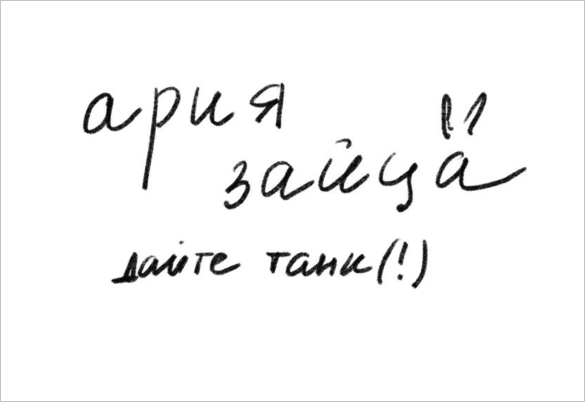 ария
зайца
дайте танк(!)